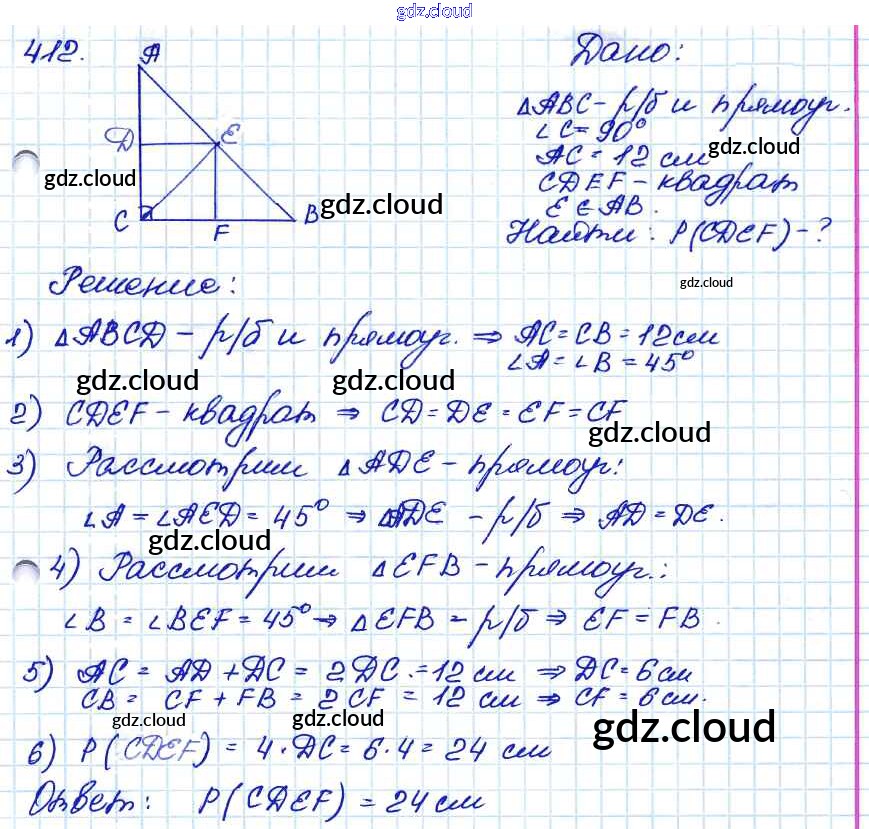 gdz.cloud
412.
A
D
E
C
F
B
Дано:
△ABC - р/б и прямоуг.
∠C = 90°
AC = 12 см
CDEF - квадрат
E ∈ AB.
Найти: P(CDEF) - ?
gdz.cloud
gdz.cloud
gdz.cloud
gdz.cloud
Решение:
1) △ABCD - р/б и прямоуг. ⇒ AC = CB = 12 см
∠A = ∠B = 45°
gdz.cloud
gdz.cloud
2) CDEF - квадрат ⇒ CD = DE = EF = CF
gdz.cloud
3) Рассмотрим △ADE - прямоуг:
∠A = ∠AED = 45° ⇒ △ADE - р/б ⇒ AD = DE.
gdz.cloud
4) Рассмотрим △EFB - прямоуг.:
∠B = ∠BEF = 45° → △EFB - р/б ⇒ EF = FB.
5) AC = AD + DC = 2DC = 12 см ⇒ DC = 6 см
CB = CF + FB = 2CF = 12 см ⇒ CF = 6 см.
gdz.cloud
gdz.cloud
gdz.cloud
6) P(CDEF) = 4·DC = 6·4 = 24 см
Ответ: P(CDEF) = 24 см